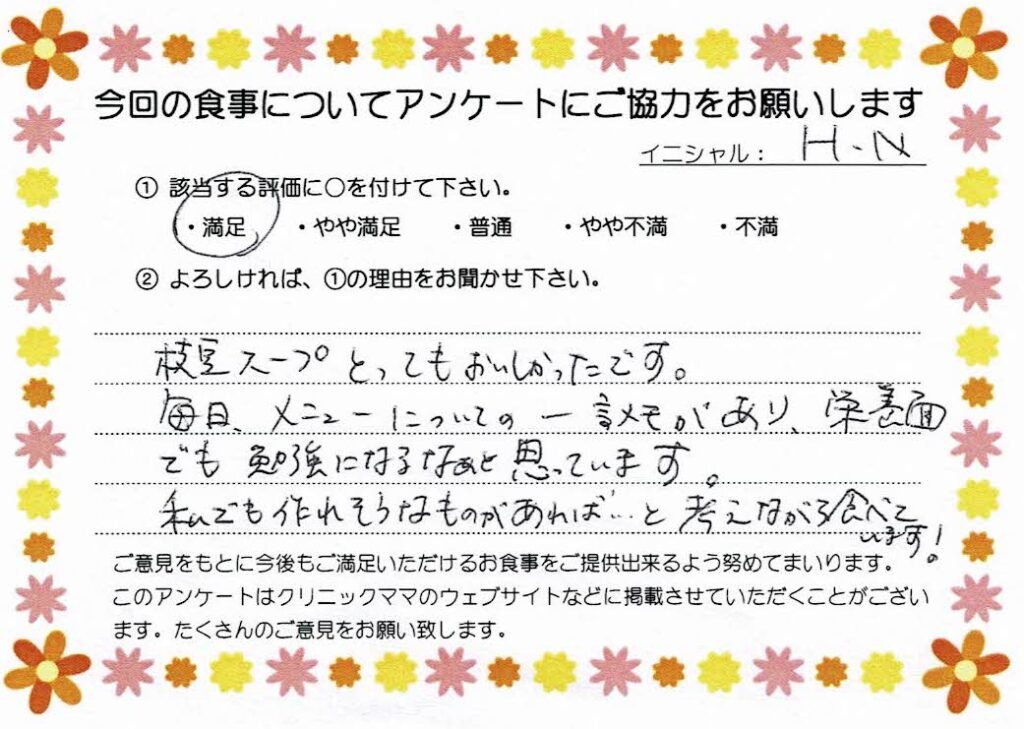 今回の食事についてアンケートにご協力をお願いします
イニシャル： H.N
① 該当する評価に○を付けて下さい。
・満足 ・やや満足 ・普通 ・やや不満 ・不満
② よろしければ、①の理由をお聞かせ下さい。
枝豆スープとってもおいしかったです。
毎日、メニューについての一言メモがあり、栄養面
でも勉強になるなぁと思っています。
私でも作れそうなものがあれば…と考えながら食べて
います！
ご意見をもとに今後もご満足いただけるお食事をご提供出来るよう努めてまいります。
このアンケートはクリニックママのウェブサイトなどに掲載させていただくことがござい
ます。たくさんのご意見をお願い致します。